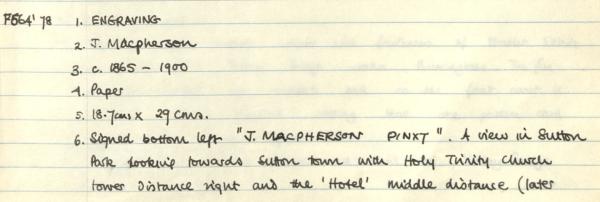 F564'78 1. ENGRAVING
2. J. Macpherson
3. c. 1865 - 1900
4. Paper
5. 18.7cms x 29 cms.
6. Signed bottom left "J. MACPHERSON PINXT". A view in Sutton
Park looking towards Sutton town with Holy Trinity Church
tower distance right and the 'Hotel' middle distance (later